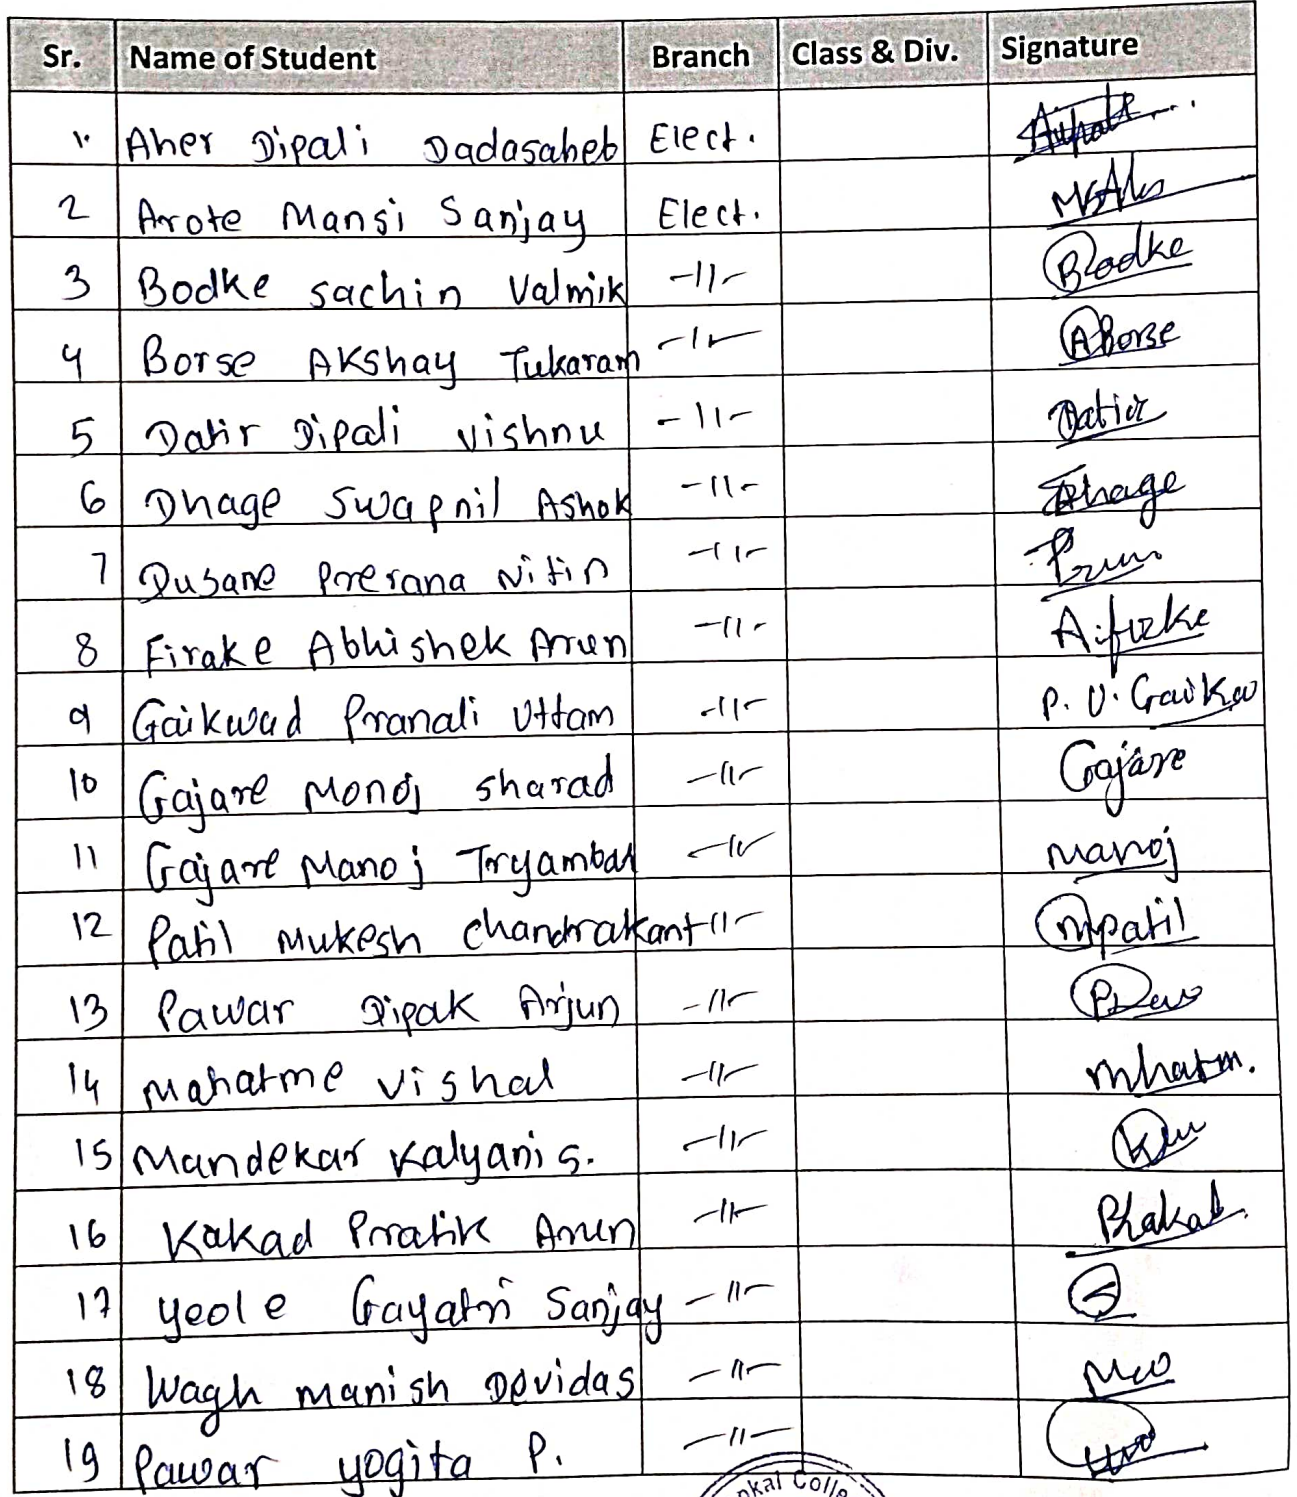 Sr. Name of Student Branch Class & Div. Signature
1. Aher Dipali Dadasaheb Elect.
2 Arote Mansi Sanjay Elect.
3 Bodke sachin Valmik -11- Bodke
4 Borse Akshay Tukaram -11- ABorse
5 Datir Dipali vishnu -11- Datir
6 Dhage Swapnil Ashok -11- Dhage
7 Dusane Prerana Nitin -11-
8 Firake Abhishek Arun -11-
9 Gaikwad Pranali Uttam -11- P. U. Gaikw
10 Gajare Monoj sharad -11- Gajare
11 Gajare Manoj Tryambak -11- Manoj
12 Patil Mukesh Chandrakant -11- mpatil
13 Pawar Dipak Arjun -11-
14 Mahatme vishal -11-
15 Mandekar Kalyani s. -11-
16 Kakad Pratik Arun -11-
17 yeole Gayatri Sanjay -11-
18 Wagh manish Devidas -11-
19 Pawar yogita P. -11-